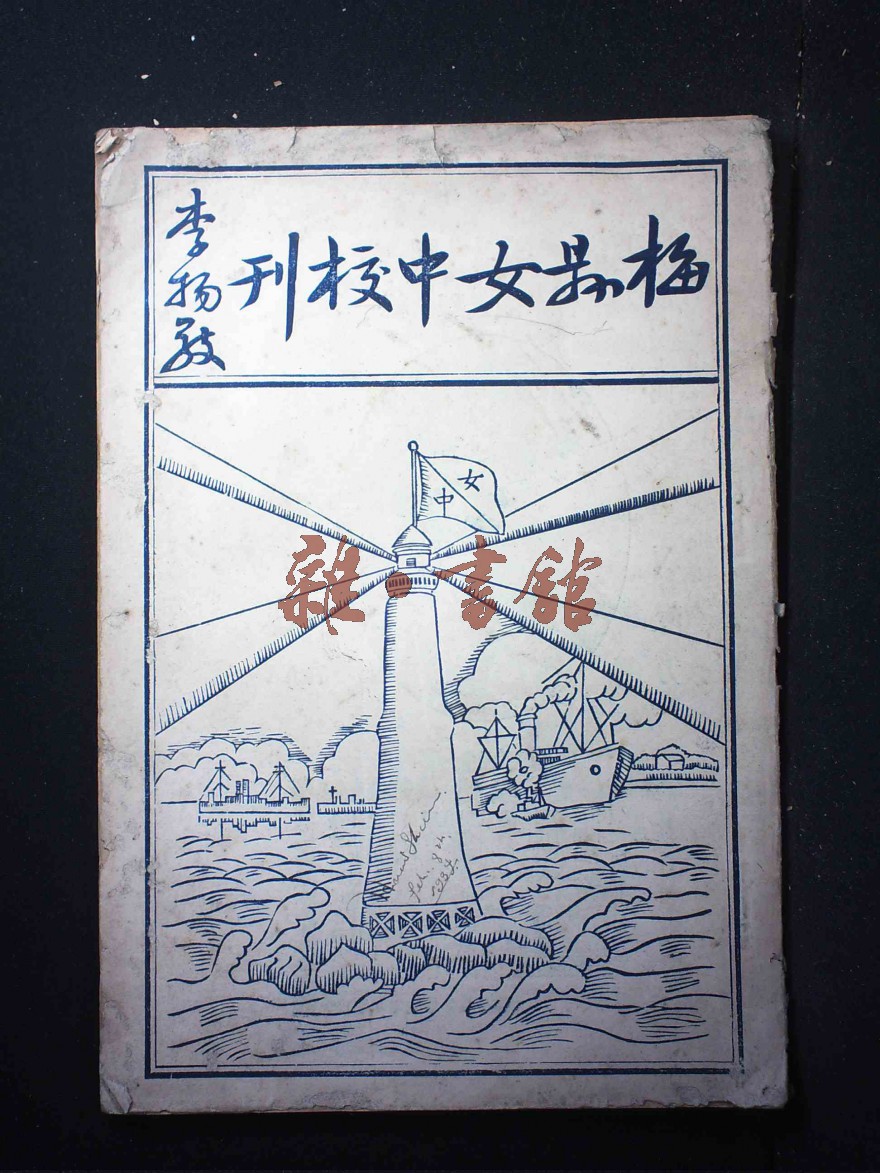 梅縣女中校刊
李揚敬
女中
雜·書館
Feb. 8th,